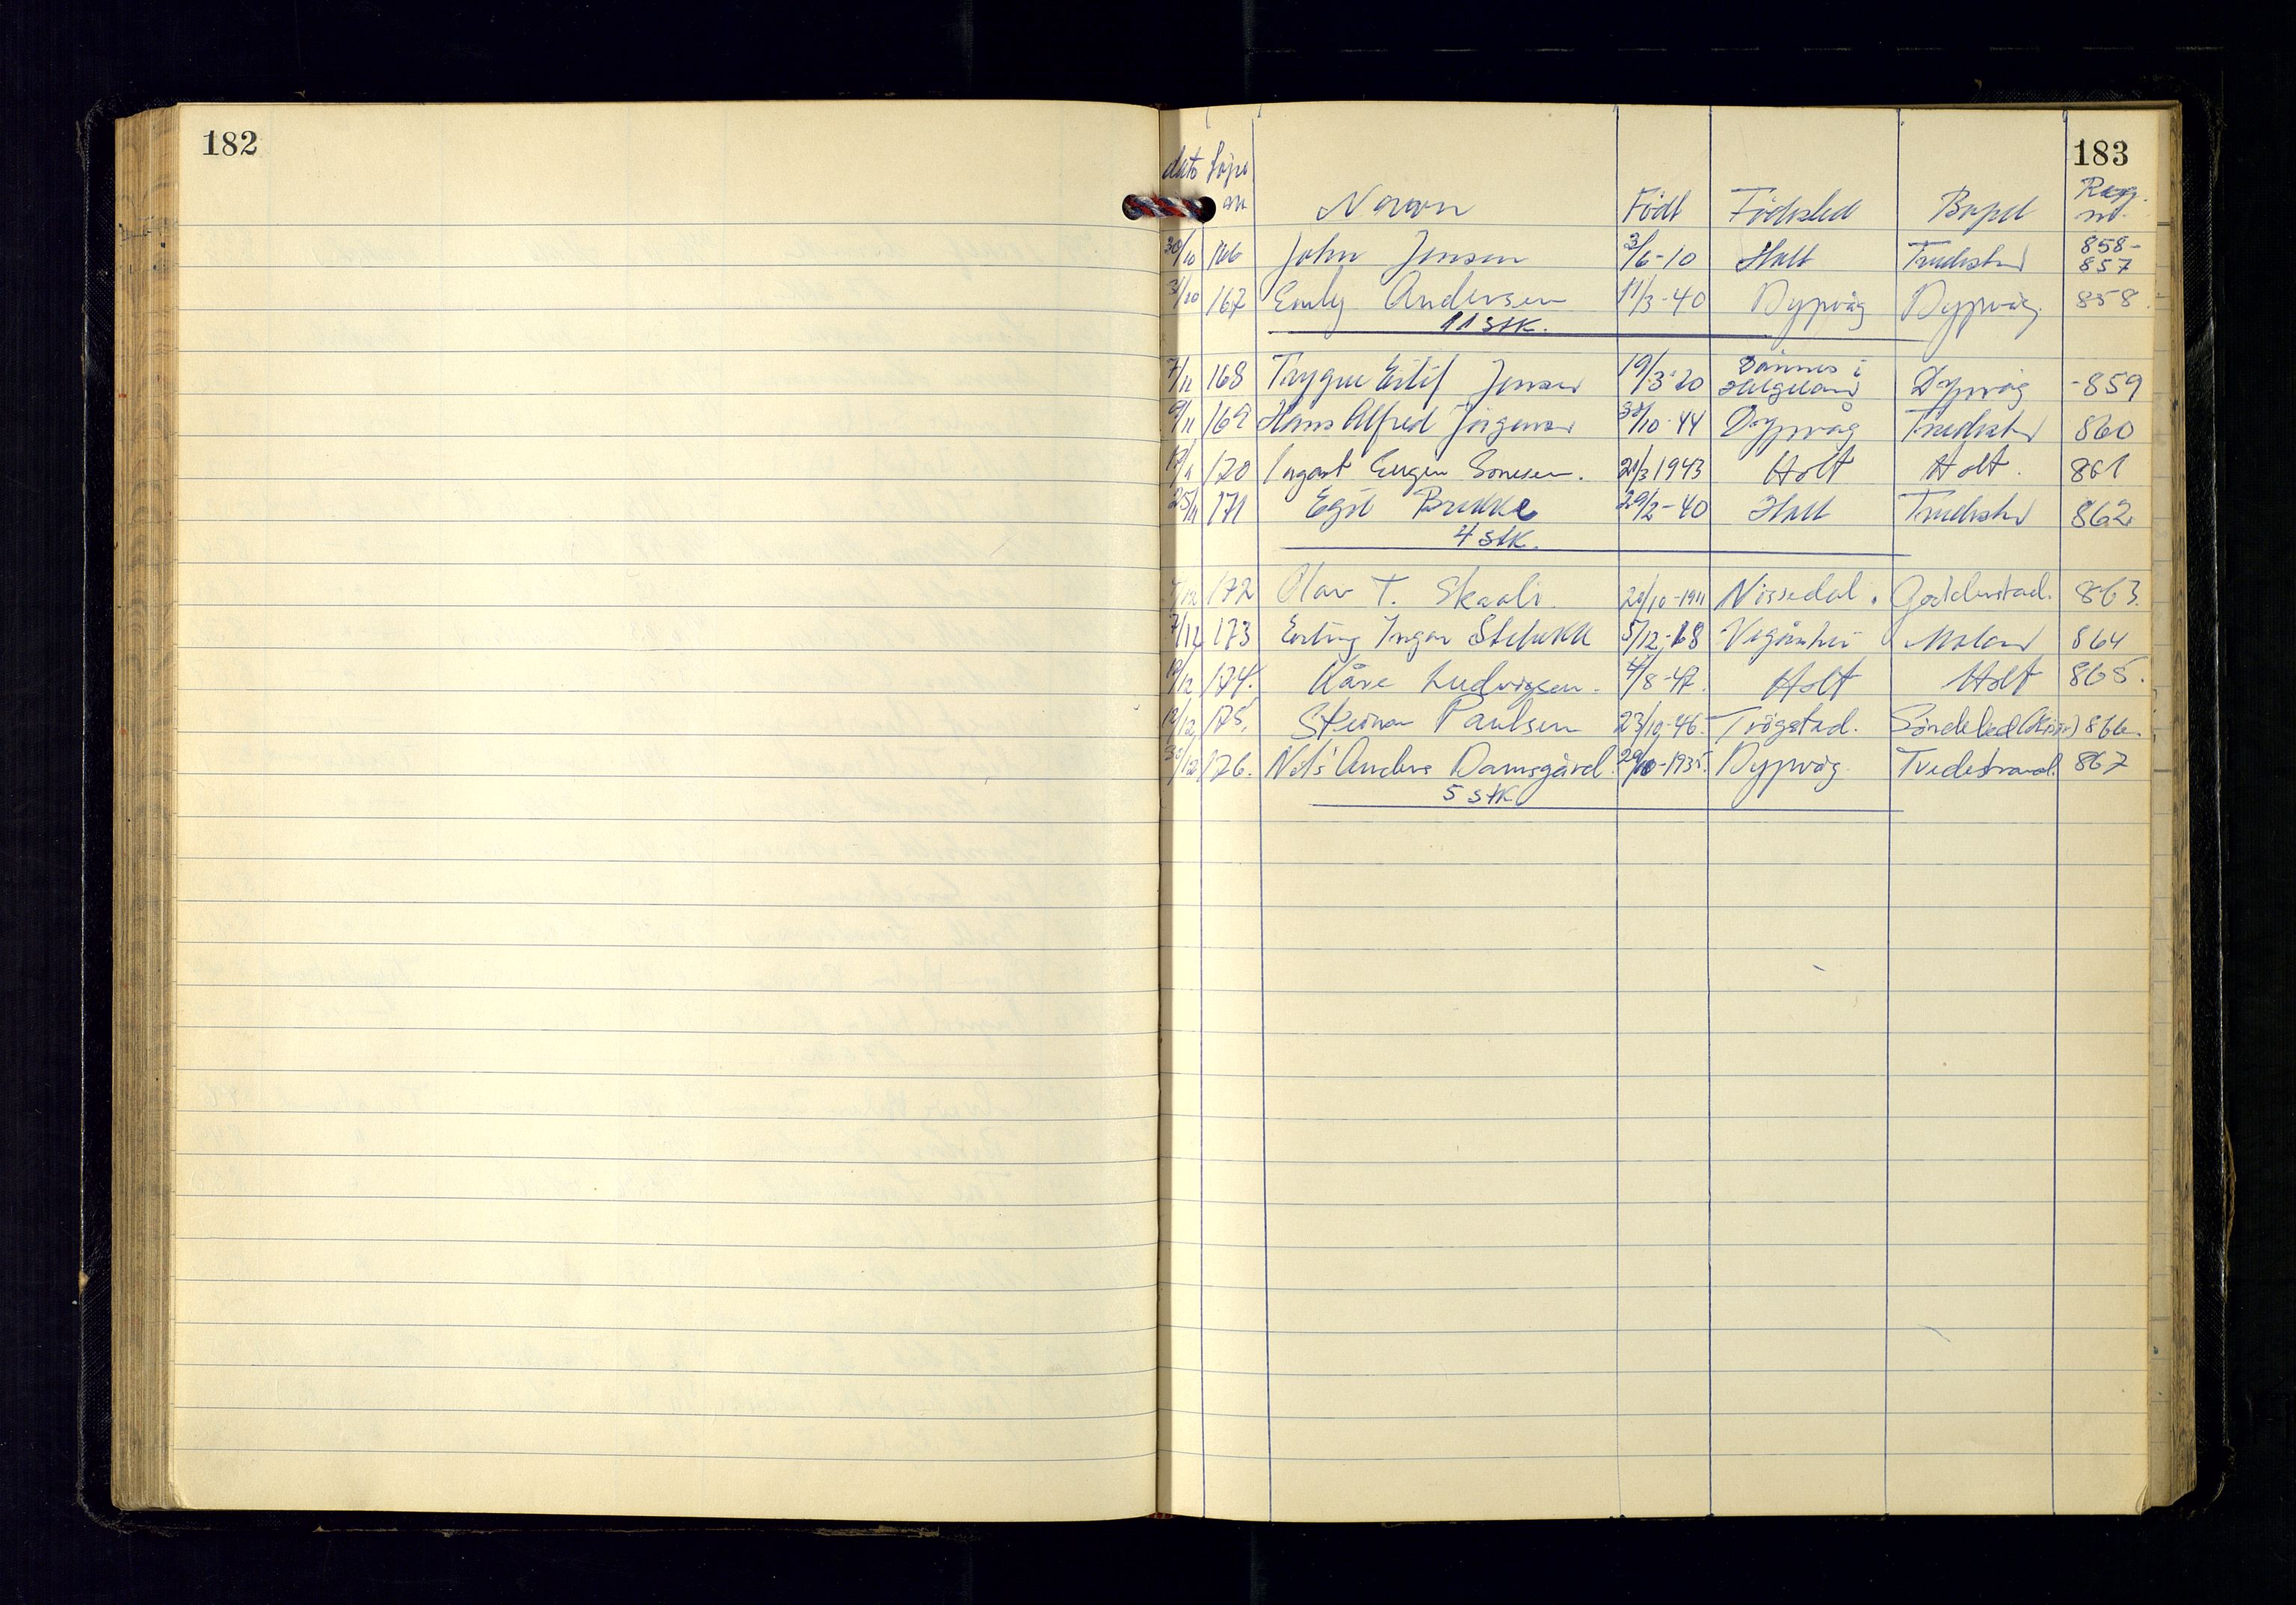 182
183
dato Løpe nr Navn Född Födested Bopel Reg. nr.
30/10 166 John Jensen 3/6-10 Holt Tvedestrd 858- 857
31/10 167 Emly Andersen 11/3-40 Dypvåg Dypvåg. 858.
11 stk.
7/11 168 Trygve Eilif Jensen 19/3-20 Dönnes i Helgeland Dypvåg -859
9/11 169 Hans Alfred Jörgensen 30/10-44 Dypvåg Tvedestrd 860
17/11 170 Ingart Eugen Sonesen. 21/3 1943 Holt Holt. 861
25/11 171 Egil Brekke 29/2-40 Holt Tvedestrd 862
4 stk.
/12 172 Olav T. Skaali. 20/10-1911 Nissedal. Gjeldenstad. 863.
7/12 173 Erling Ingar Stebekk 5/12-68 Vegårshei Moland 864
12/12 174. Kåre Ludvigsen. 4/8-47. Holt Holt 865.
12/12 175. Steinar Paulsen 23/10-46. Trögstad. Söndeled (Risör) 866.
30/12 176. Nils Anders Damsgård. 29/10-1935. Dypvåg. Tvedestrand. 867
5 stk